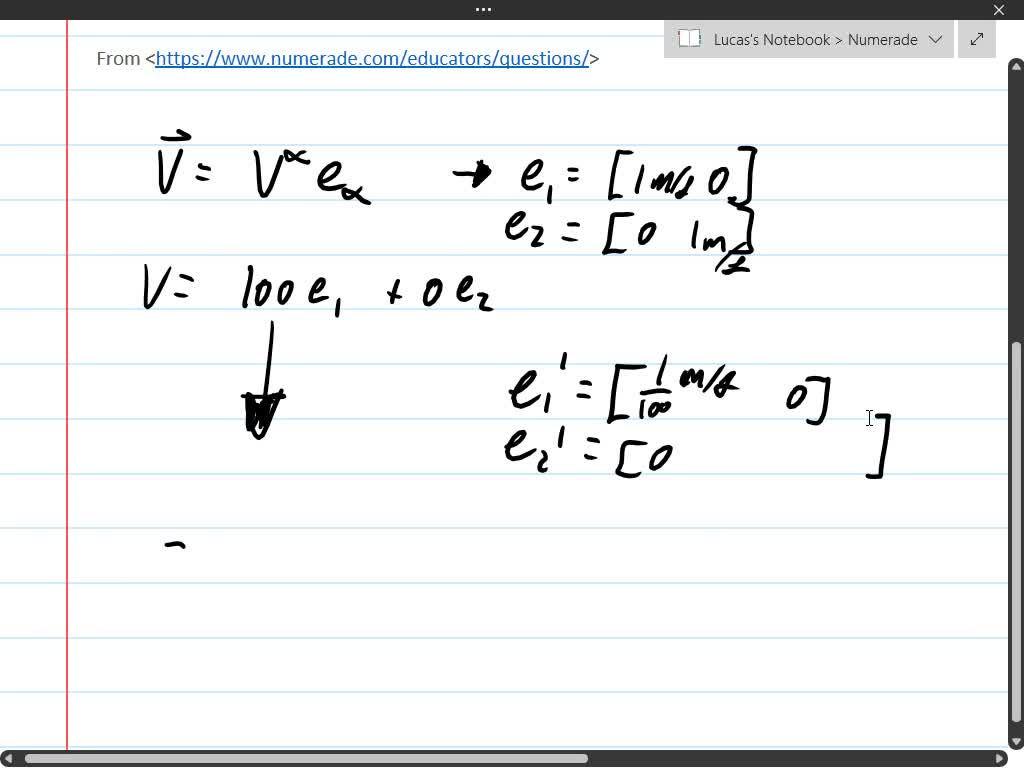 Lucas's Notebook > Numerade
From <https://www.numerade.com/educators/questions/>
V⃗ = V^α e_α → e₁ = [1 m/s 0]
e₂ = [0 1 m/s]
V = 100 e₁ + 0 e₂
e₁' = [1/100 m/s 0]
e₂' = [0 ]